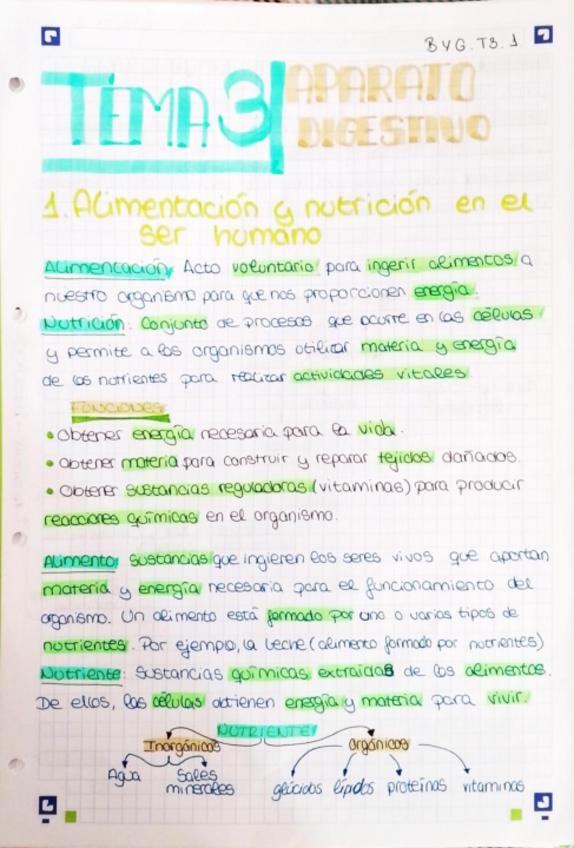 BYG.T3.1
TEMA 3 APARATO
DIGESTIVO
1. Alimentación y nutrición en el
ser humano
Alimentación: Acto voluntario para ingerir alimentos a
nuestro organismo para que nos proporcionen energía.
Nutrición: Conjunto de procesos que ocurre en las células
y permite a los organismos utilizar materia y energía
de los nutrientes para realizar actividades vitales.
FUNCIONES
• Obtener energía necesaria para la vida.
• Obtener materia para construir y reparar tejidos dañados.
• Obtener sustancias reguladoras (vitaminas) para producir
reacciones químicas en el organismo.
Alimento: Sustancias que ingieren los seres vivos que aportan
materia y energía necesaria para el funcionamiento del
organismo. Un alimento está formado por uno o varios tipos de
nutrientes. Por ejemplo, la leche (alimento formado por nutrientes)
Nutriente: Sustancias químicas extraídas de los alimentos.
De ellos, las células obtienen energía y materia para vivir.
NUTRIENTE
Inorgánicos orgánicos
Agua Sales minerales glúcidos lípidos proteínas vitaminas